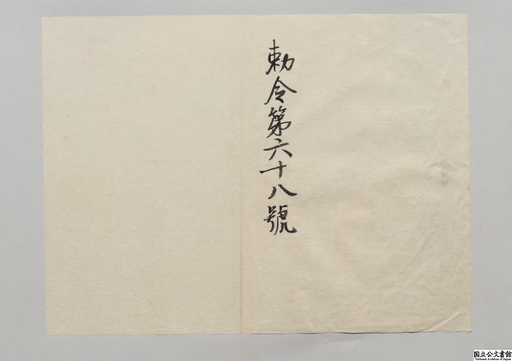 勅令第六十八號
国立公文書館
National Archives of Japan